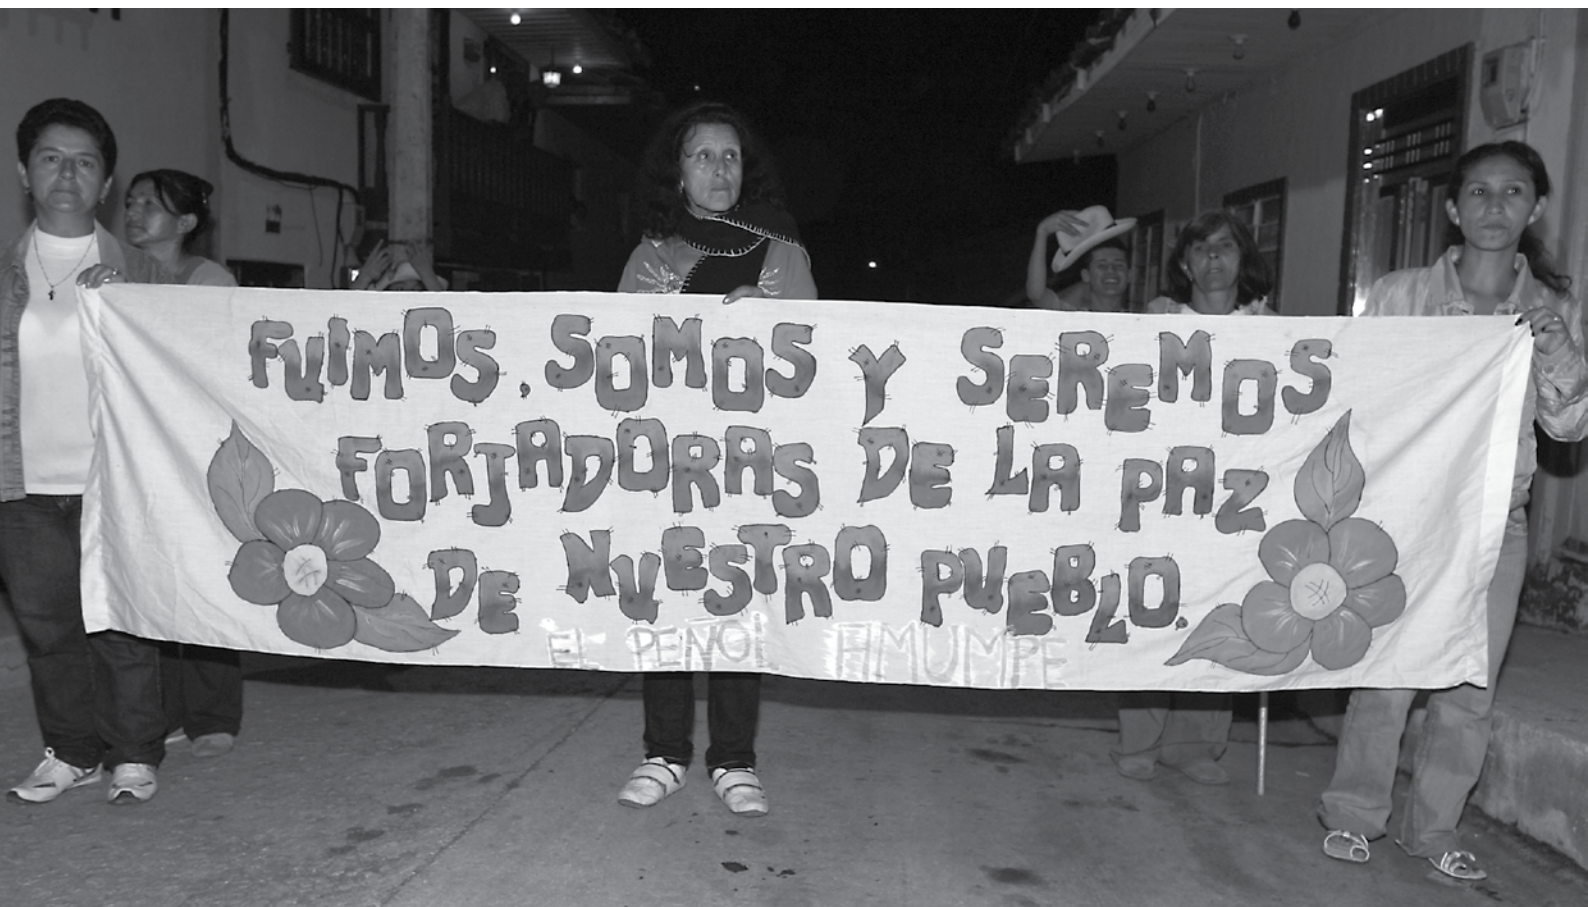 FUIMOS, SOMOS Y SEREMOS
FORJADORAS DE LA PAZ
DE NUESTRO PUEBLO.
EL PEÑOL